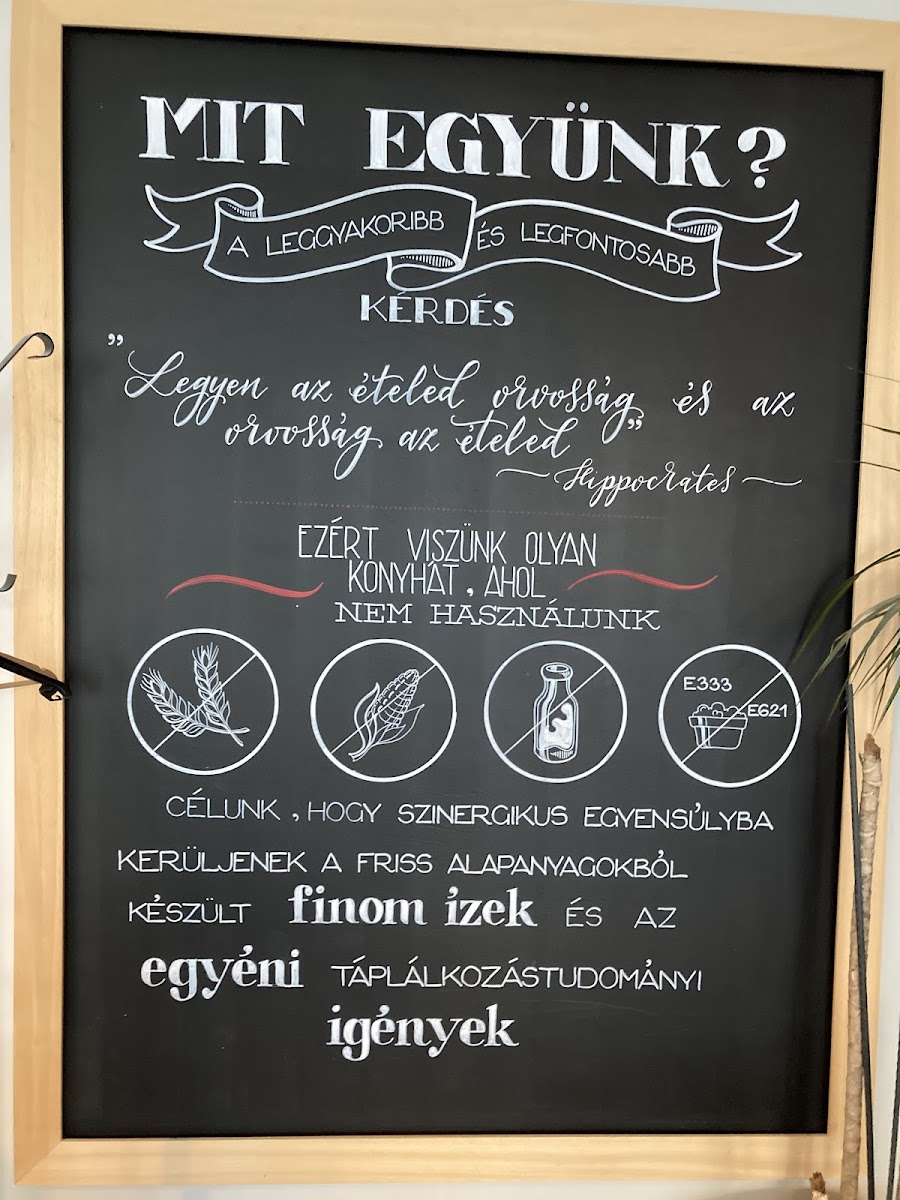 MIT EGYÜNK?
A LEGGYAKORIBB ÉS LEGFONTOSABB
KÉRDÉS
"Legyen az ételed orvosság és az
orvosság az ételed"
~ Hippocrates ~
EZÉRT VISZÜNK OLYAN
KONYHÁT, AHOL
NEM HASZNÁLUNK
E333
E621
CÉLUNK, HOGY SZINERGIKUS EGYENSÚLYBA
KERÜLJENEK A FRISS ALAPANYAGOKBÓL
KÉSZÜLT finom ízek ÉS AZ
egyéni TÁPLÁLKOZÁSTUDOMÁNYI
igények